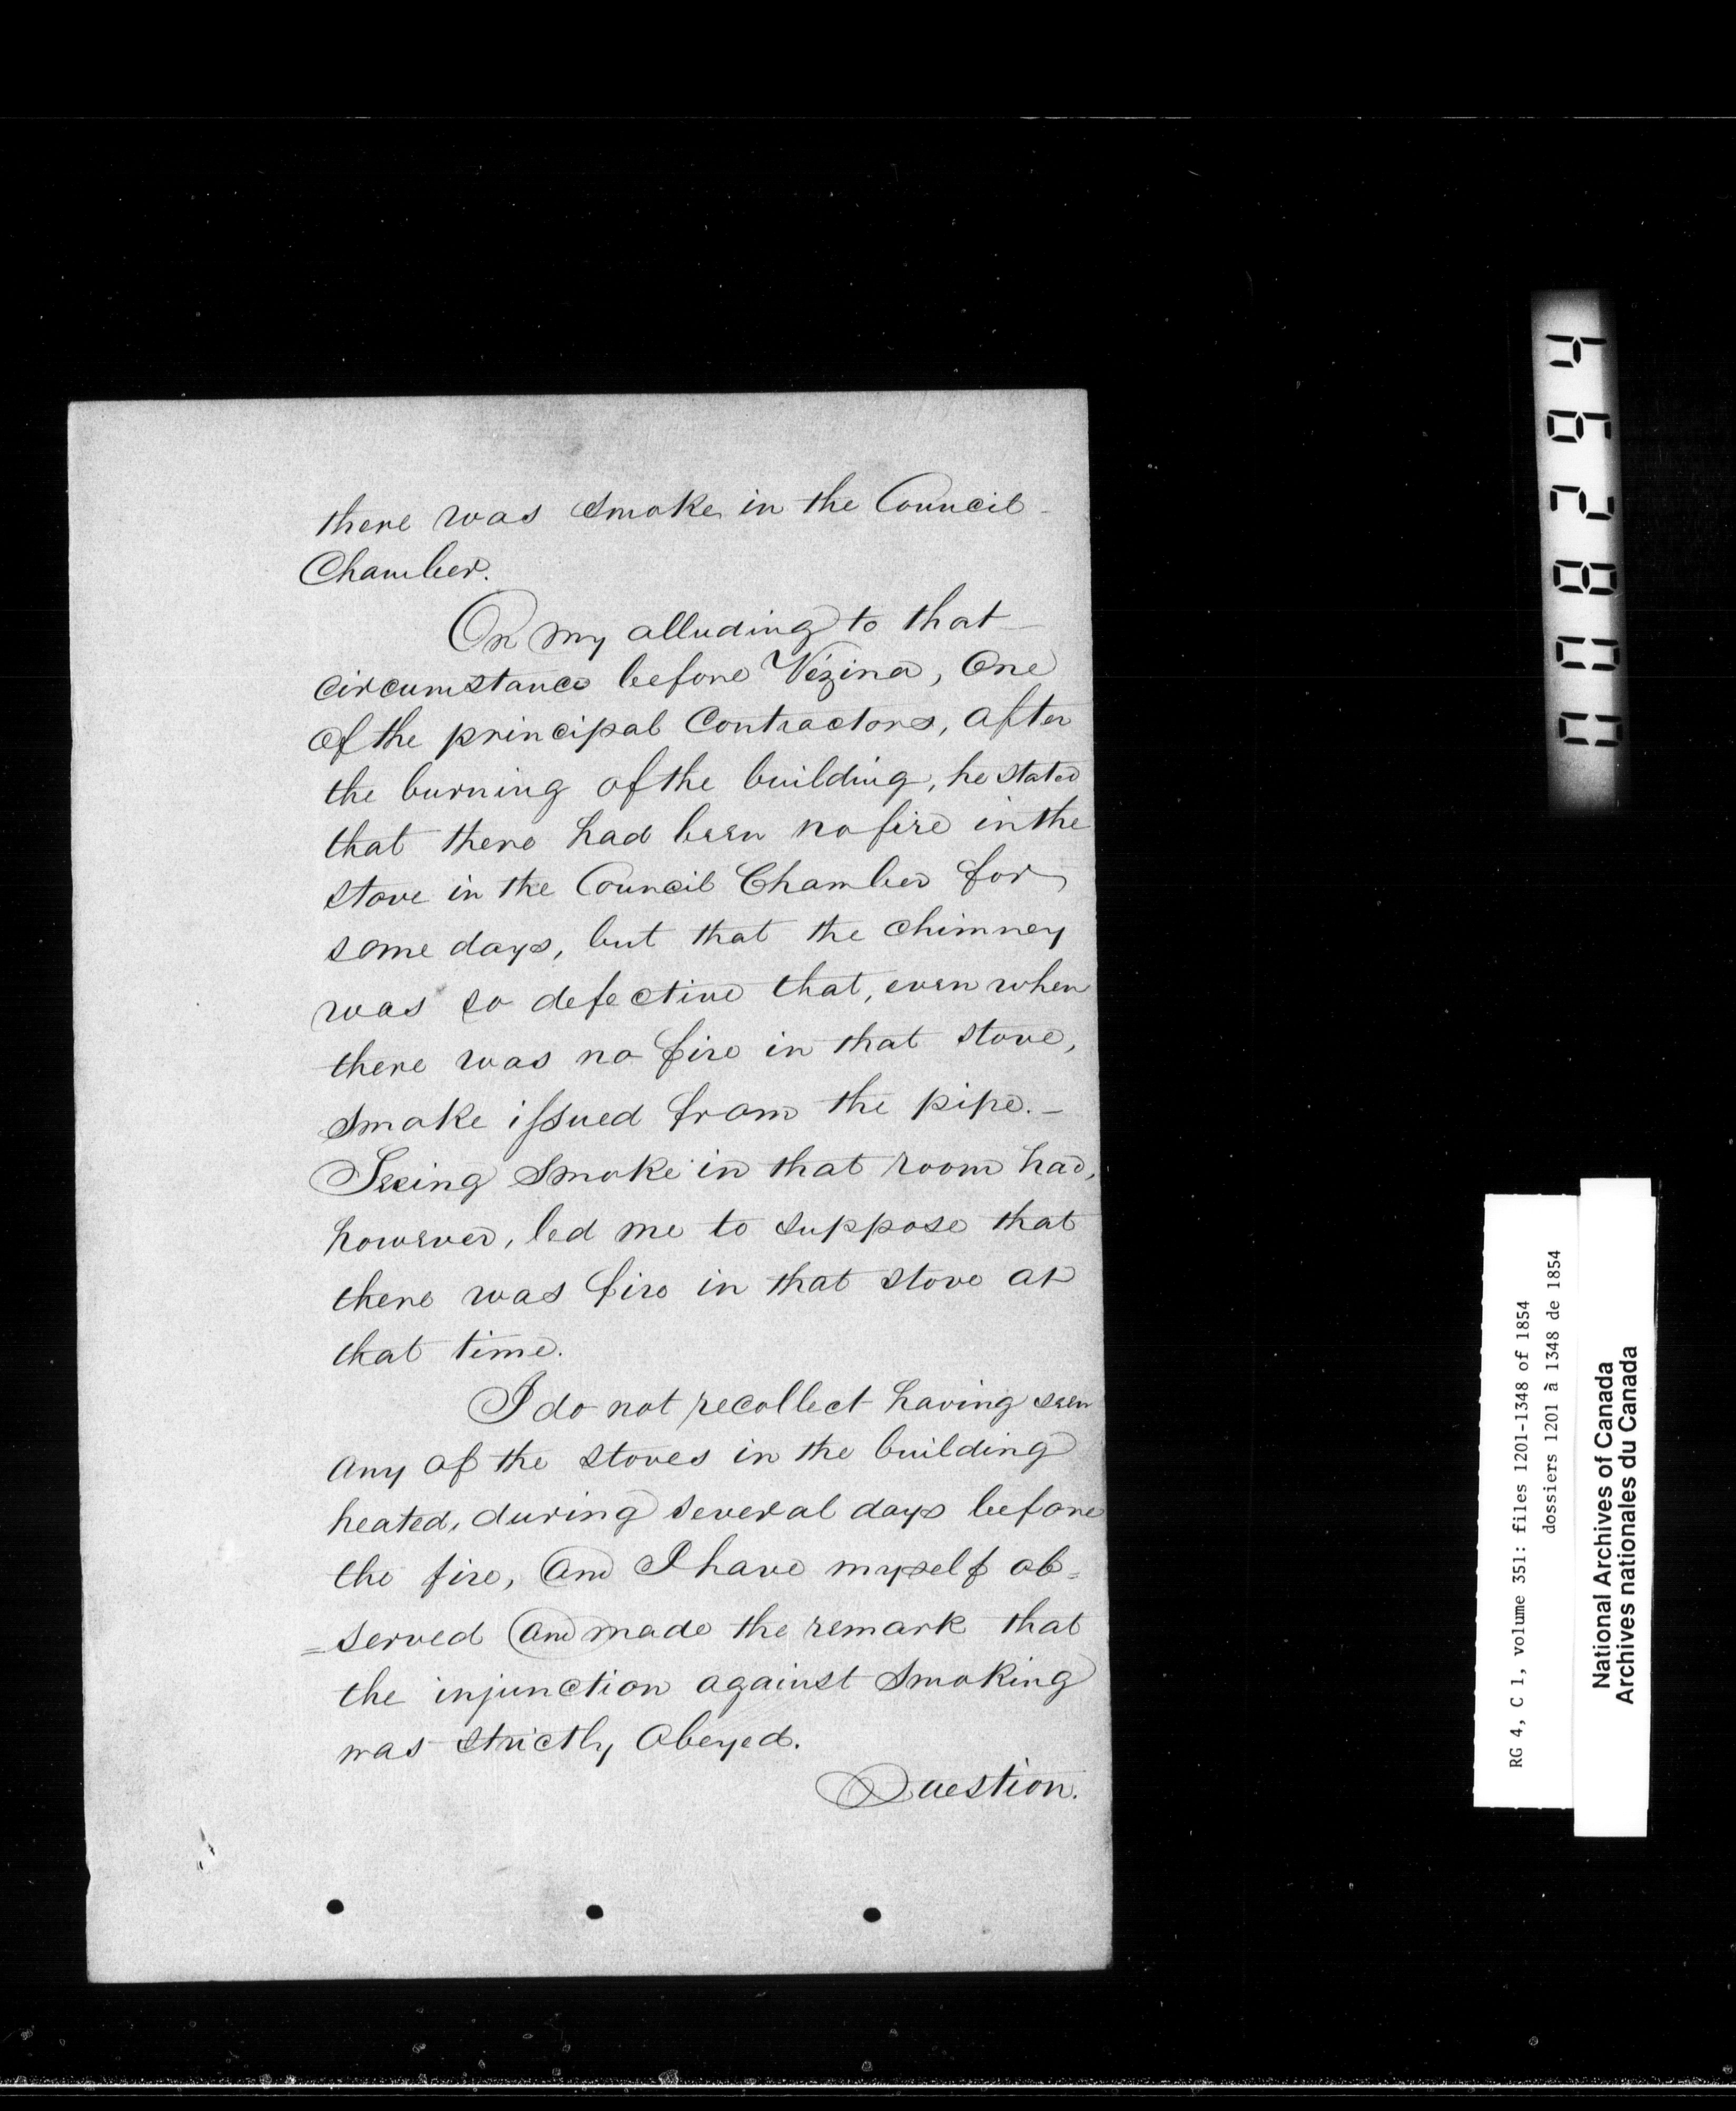 there was smoke in the Council -
Chamber.
On my alluding to that -
circumstance before Vézina, One
of the principal Contractors, after
the burning of the building, he stated
that there had been no fire in the
stove in the Council Chamber for
some days, but that the chimney
was so defective that, even when
there was no fire in that stove,
smoke issued from the pipe. -
Seeing smoke in that room had,
however, led me to suppose that
there was fire in that stove at
that time.
I do not recollect having seen
any of the stoves in the building
heated, during several days before
the fire, and I have myself ob=
=served and made the remark that
the injunction against smoking
was strictly obeyed.
Question.
002864
RG 4, C 1, volume 351: files 1201-1348 of 1854
dossiers 1201 à 1348 de 1854
National Archives of Canada
Archives nationales du Canada